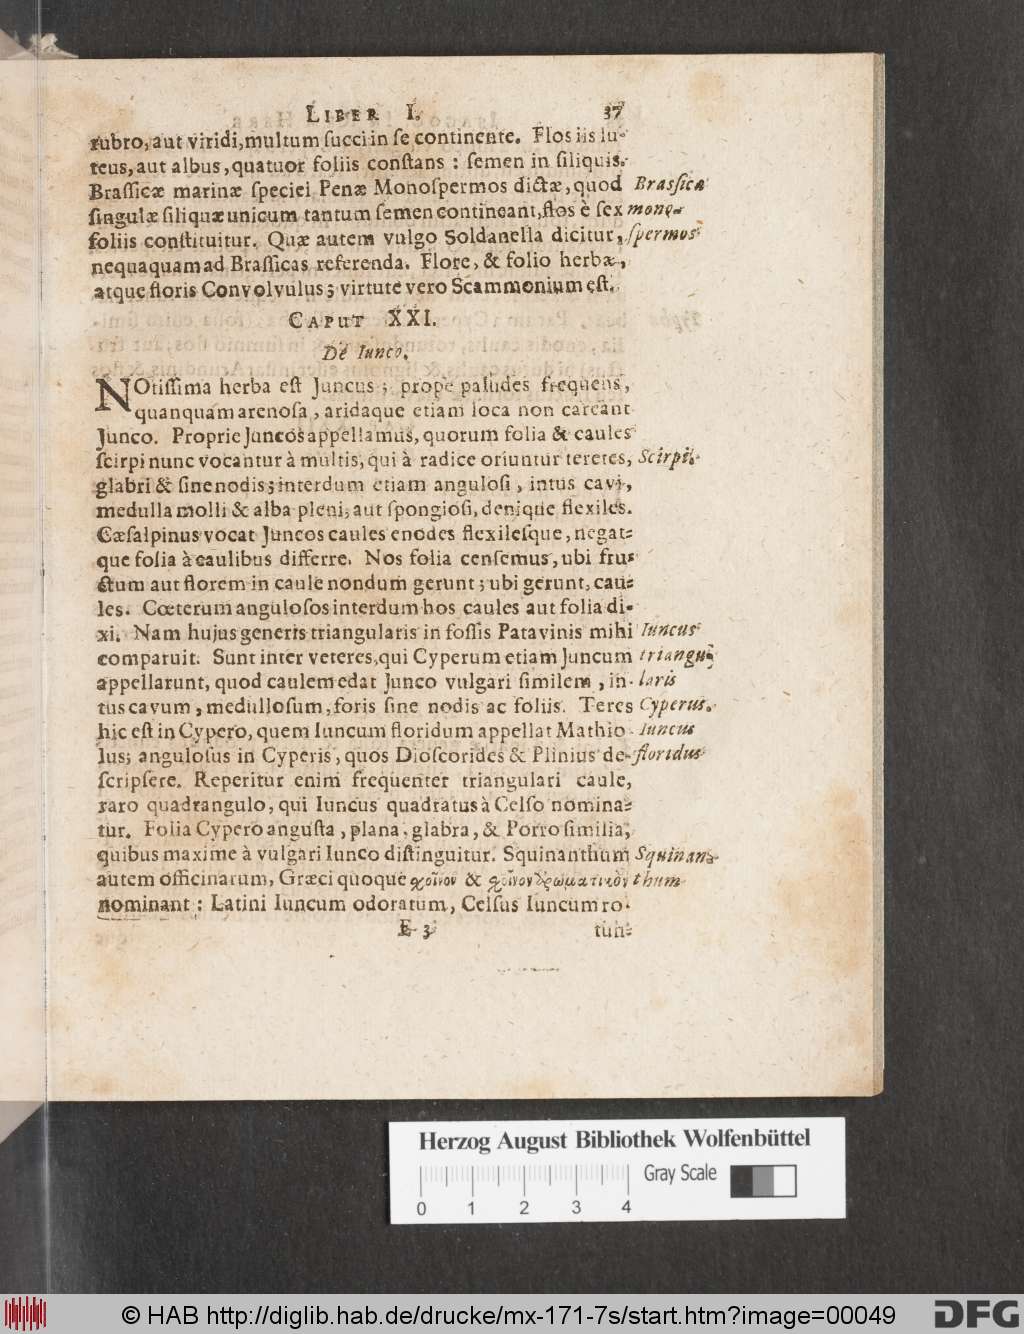 LIBER I. 37
rubro, aut viridi, multum ſucci in ſe continente. Flos iis lu-
teus, aut albus, quatuor foliis conſtans : ſemen in ſiliquis.
Braſſicæ marinæ ſpeciei Penæ Monoſpermos dictæ, quod Braſſica
ſingulæ ſiliquæ unicum tantum ſemen contineant, flos è ſex mono-
foliis conſtituitur. Quæ autem vulgo Soldanella dicitur, ſpermos
nequaquam ad Braſſicas referenda. Flore, & folio herbæ,
atque floris Convolvulus; virtute vero Scammonium eſt.
CAPUT XXI.
De Iunco.
NOtiſſima herba eſt Juncus; prope paludes frequens,
quanquam arenoſa, aridaque etiam loca non careant
Junco. Proprie Juncos appellamus, quorum folia & caules
ſcirpi nunc vocantur à multis, qui à radice oriuntur teretes, Scirpi.
glabri & ſine nodis; interdum etiam anguloſi, intus cavi,
medulla molli & alba pleni, aut ſpongioſi, denique flexiles.
Cæſalpinus vocat Juncos caules enodes flexileſque, negat-
que folia à caulibus differre. Nos folia cenſemus, ubi fru-
ctum aut florem in caule nondum gerunt; ubi gerunt, cau-
les. Cœterum anguloſos interdum hos caules aut folia di-
xi. Nam hujus generis triangularis in foſſis Patavinis mihi Iuncus
comparuit. Sunt inter veteres, qui Cyperum etiam Juncum triangu-
appellarunt, quod caulem edat Junco vulgari ſimilem, in- laris
tus cavum, medulloſum, foris ſine nodis ac foliis. Teres Cyperus.
hic eſt in Cypero, quem Iuncum floridum appellat Mathio- Iuncus
lus; anguloſus in Cyperis, quos Dioſcorides & Plinius de- floridus
ſcripſere. Reperitur enim frequenter triangulari caule,
raro quadrangulo, qui Iuncus quadratus à Celſo nomina-
tur. Folia Cypero anguſta, plana, glabra, & Porro ſimilia,
quibus maxime à vulgari Iunco diſtinguitur. Squinanthum Squinan-
autem officinarum, Græci quoque σχοῖνον & σχοῖνον ἀρωματικὸν thum
nominant : Latini Iuncum odoratum, Celſus Iuncum ro-
E 3 tun-
Herzog August Bibliothek Wolfenbüttel
Gray Scale
0 1 2 3 4
© HAB http://diglib.hab.de/drucke/mx-171-7s/start.htm?image=00049
DFG